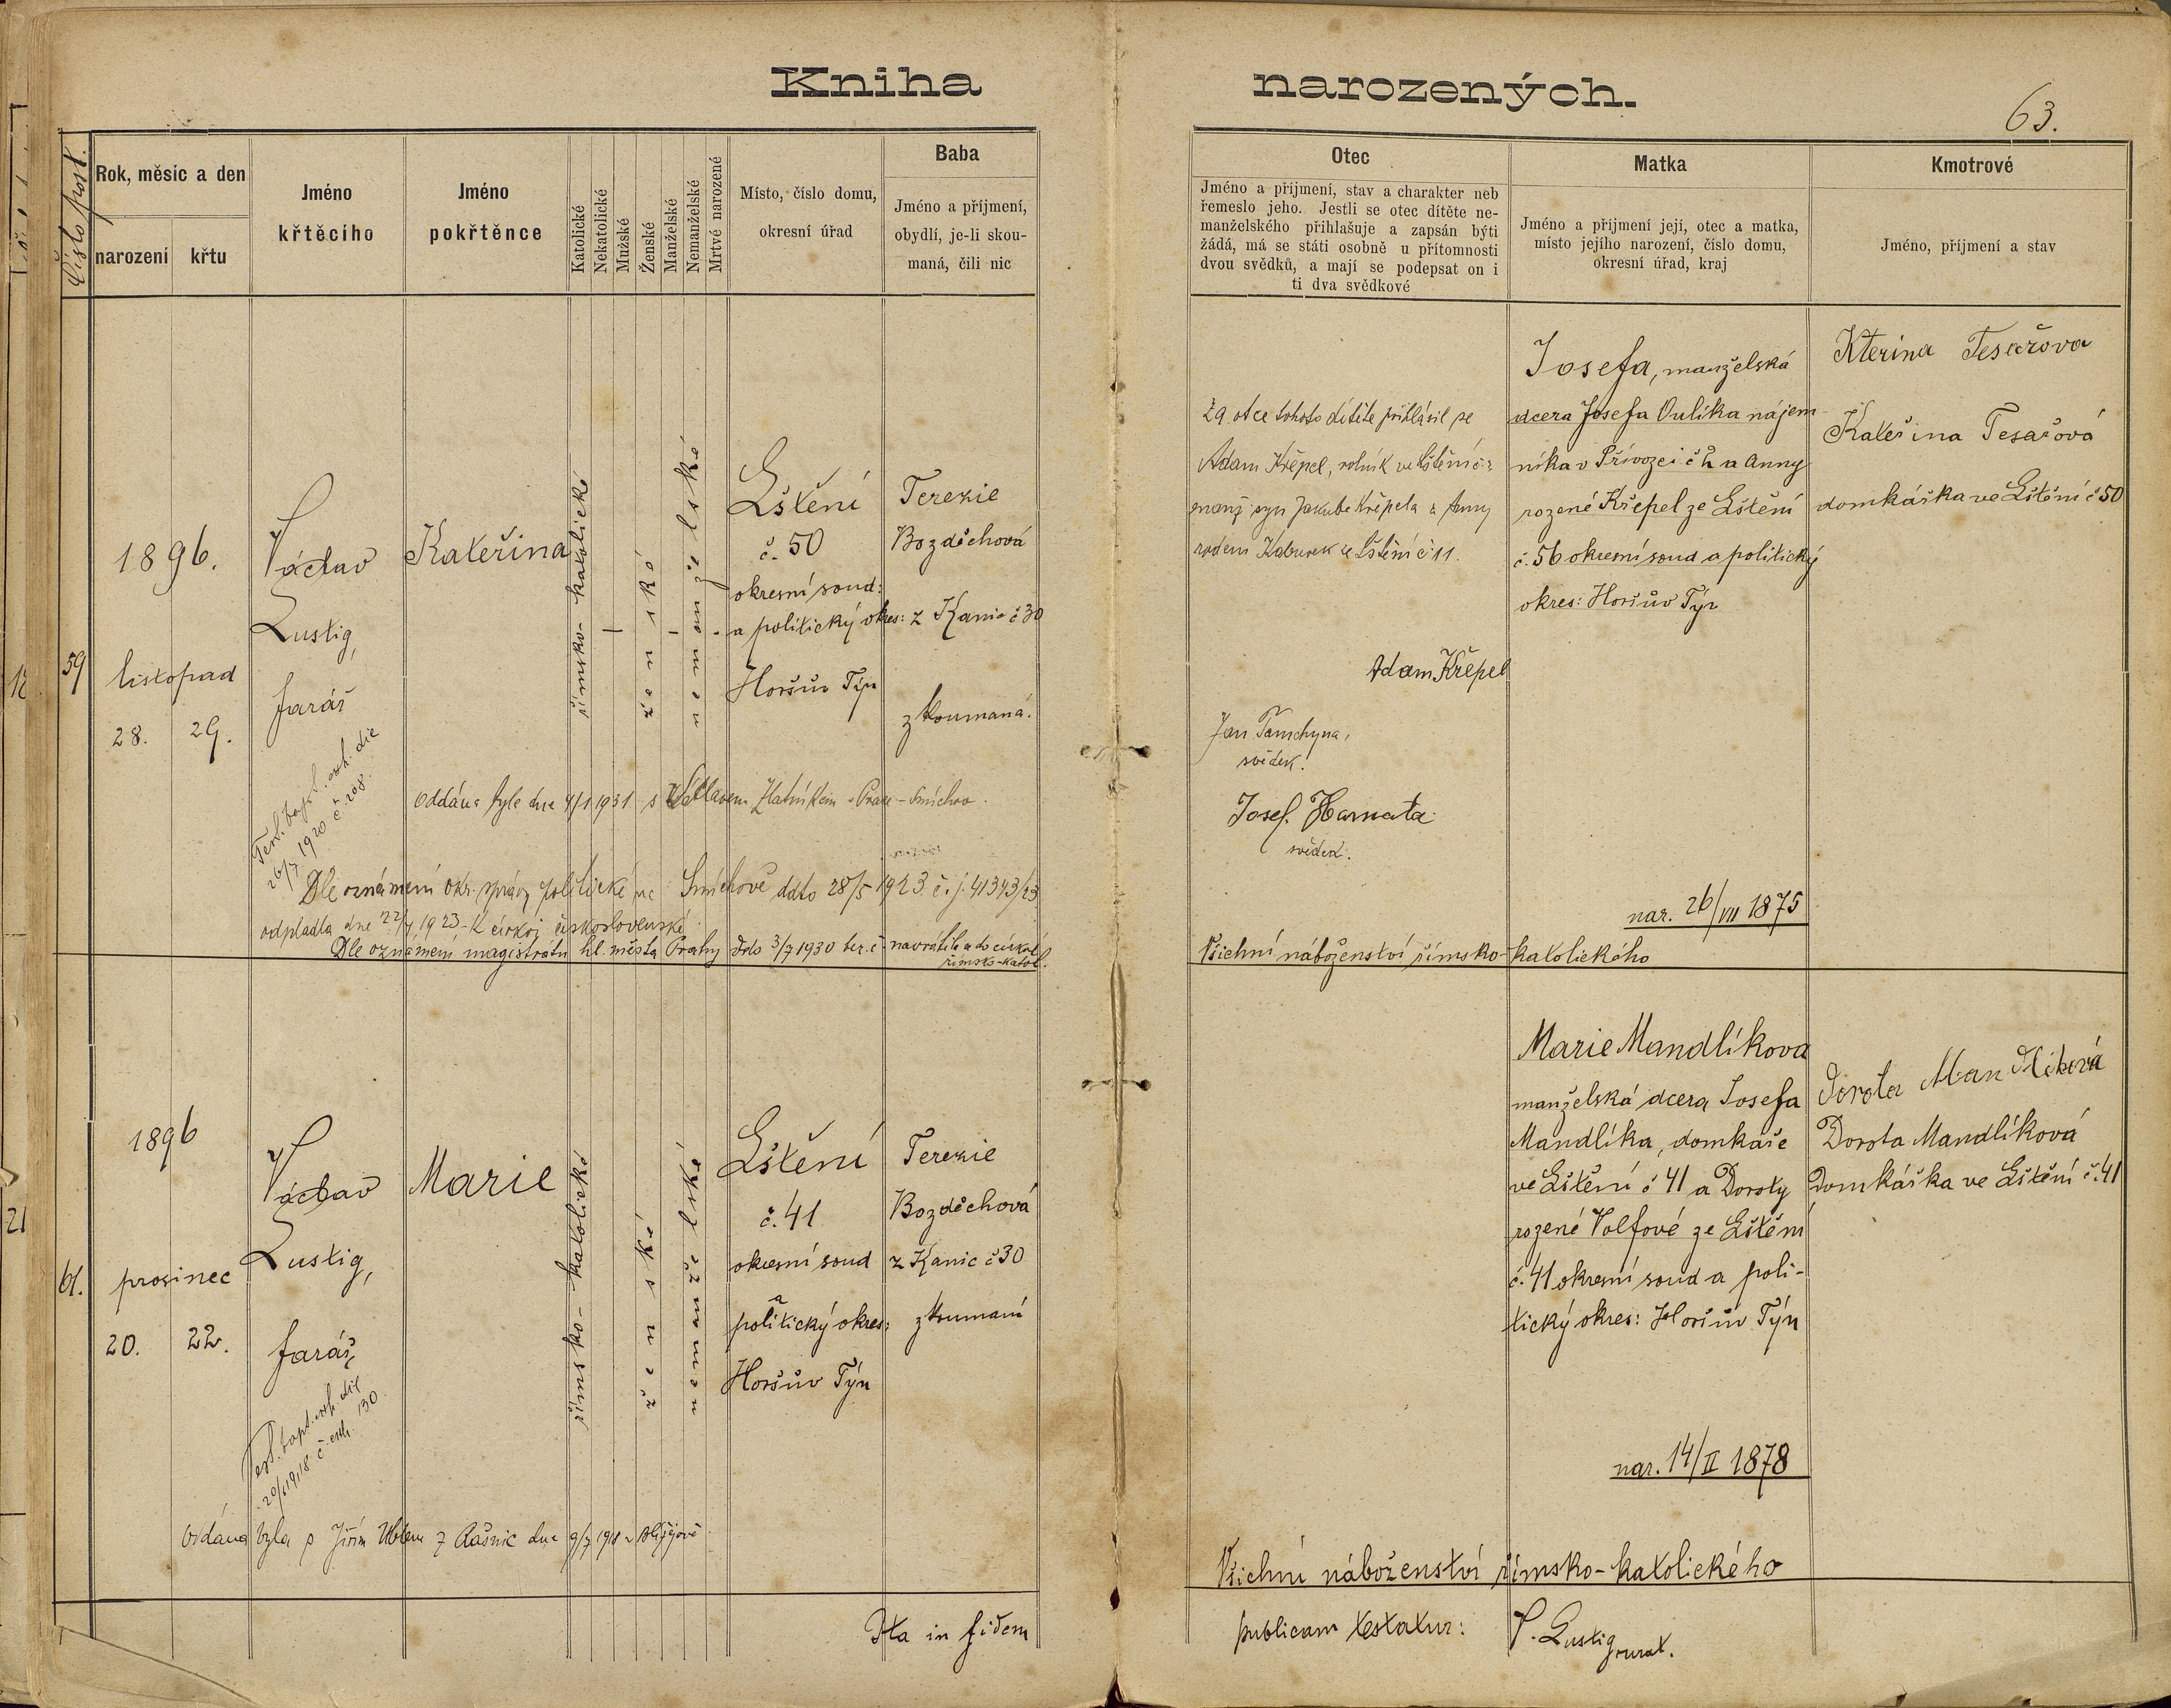 Kniha narozených.
63.
Číslo post.
Rok, měsíc a den
narození
křtu
Jméno
křtěcího
Jméno
pokřtěnce
Katolické
Nekatolické
Mužské
Ženské
Manželské
Nemanželské
Mrtvé narozené
Místo, číslo domu,
okresní úřad
Baba
Jméno a příjmení,
obydlí, je-li skou-
maná, čili nic
Otec
Jméno a příjmení, stav a charakter neb
řemeslo jeho. Jestli se otec dítěte ne-
manželského přihlašuje a zapsán býti
žádá, má se státi osobně u přítomnosti
dvou svědků, a mají se podepsat on i
ti dva svědkové
Matka
Jméno a příjmení její, otec a matka,
místo jejího narození, číslo domu,
okresní úřad, kraj
Kmotrové
Jméno, příjmení a stav
59
1896.
listopad
28. 29.
Václav
Lustig,
farář
Test. bapt. exh. die
26/7 1920 č. 208.
Kateřina
římsko-katolické
ženské
nemanželské
Lštění
č. 50
okresní soud:
a politický okres:
Horšův Týn
Terezie
Bozděchová
z Kanic č 30
zkoumaná.
Oddána byla dne 4/1 1931 s Václavem Zlatníkem v Praze - Smíchov.
Dle oznámení okr. správy politické na Smíchově ddto 28/5 1923 č.j. 41343/23
odpadla dne 22/4 1923 k církvi československé.
Dle oznámení magistrátu hl. města Prahy ddo 3/7 1930 navrátila do církve
římsko-katol.
Za otce tohoto dítěte přihlásil se
Adam Křepel, rolník ve Lštění č.
manž syn Jakuba Křepela a Anny
rodem ze Lštění č 11.
Adam Křepel
Jan Tamchyna,
svědek.
Josef Harnata
svědek.
Josefa, manželská
dcera Josefa Oulíka nájem-
níka v Přívozci č 2 a Anny
rozené Křepel ze Lštění
č. 56 okresní soud a politický
okres: Horšův Týn
nar. 26/VII 1875
Kterina Tesařova
Kateřina Tesařová
domkářka ve Lštění č 50
Všichni náboženství římsko-katolického
61.
1896
prosinec
20. 22.
Václav
Lustig,
farář,
Test. bapt. exh. die
20/6 1918 č. exh. 130
Marie
římsko-katolické
ženské
nemanželské
Lštění
č. 41
okresní soud
a
politický okres:
Horšův Týn
Terezie
Bozděchová
z Kanic č 30
zkoumaní
Oddána byla s Jiřím z dne 9/7 1918 v Blížejově
Marie Mandlíkova
manželská dcera Josefa
Mandlíka, domkaře
ve Lštění č 41 a Doroty
rozené Volfové ze Lštění
č. 41 okresní soud a poli-
tický okres: Horšův Týn
nar. 14/II 1878
Dorota Mandlíková
Dorota Mandlíková
Domkářka ve Lštění č. 41
Všichni náboženství římsko-katolického
Ita in fidem publicam testatur: V. Lustig curat.